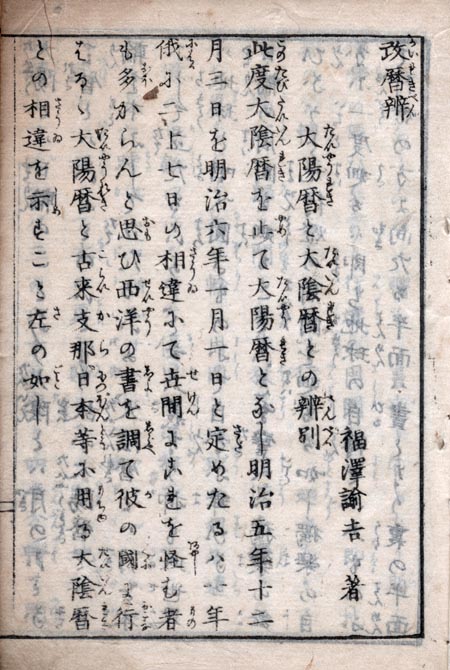 改暦辨
福澤諭吉 著
大陽暦と大陰暦との辨別
此度大陰暦を止て大陽暦となし明治五年十二
月三日を明治六年一月一日と定めたるハ一年
俄に二十七日の相違にて世間にこれを怪む者
も多からんと思ひ西洋の書を調て彼の國に行
はるゝ大陽暦と古来支那日本等に用る大陰暦
との相違を示すこと左の如し